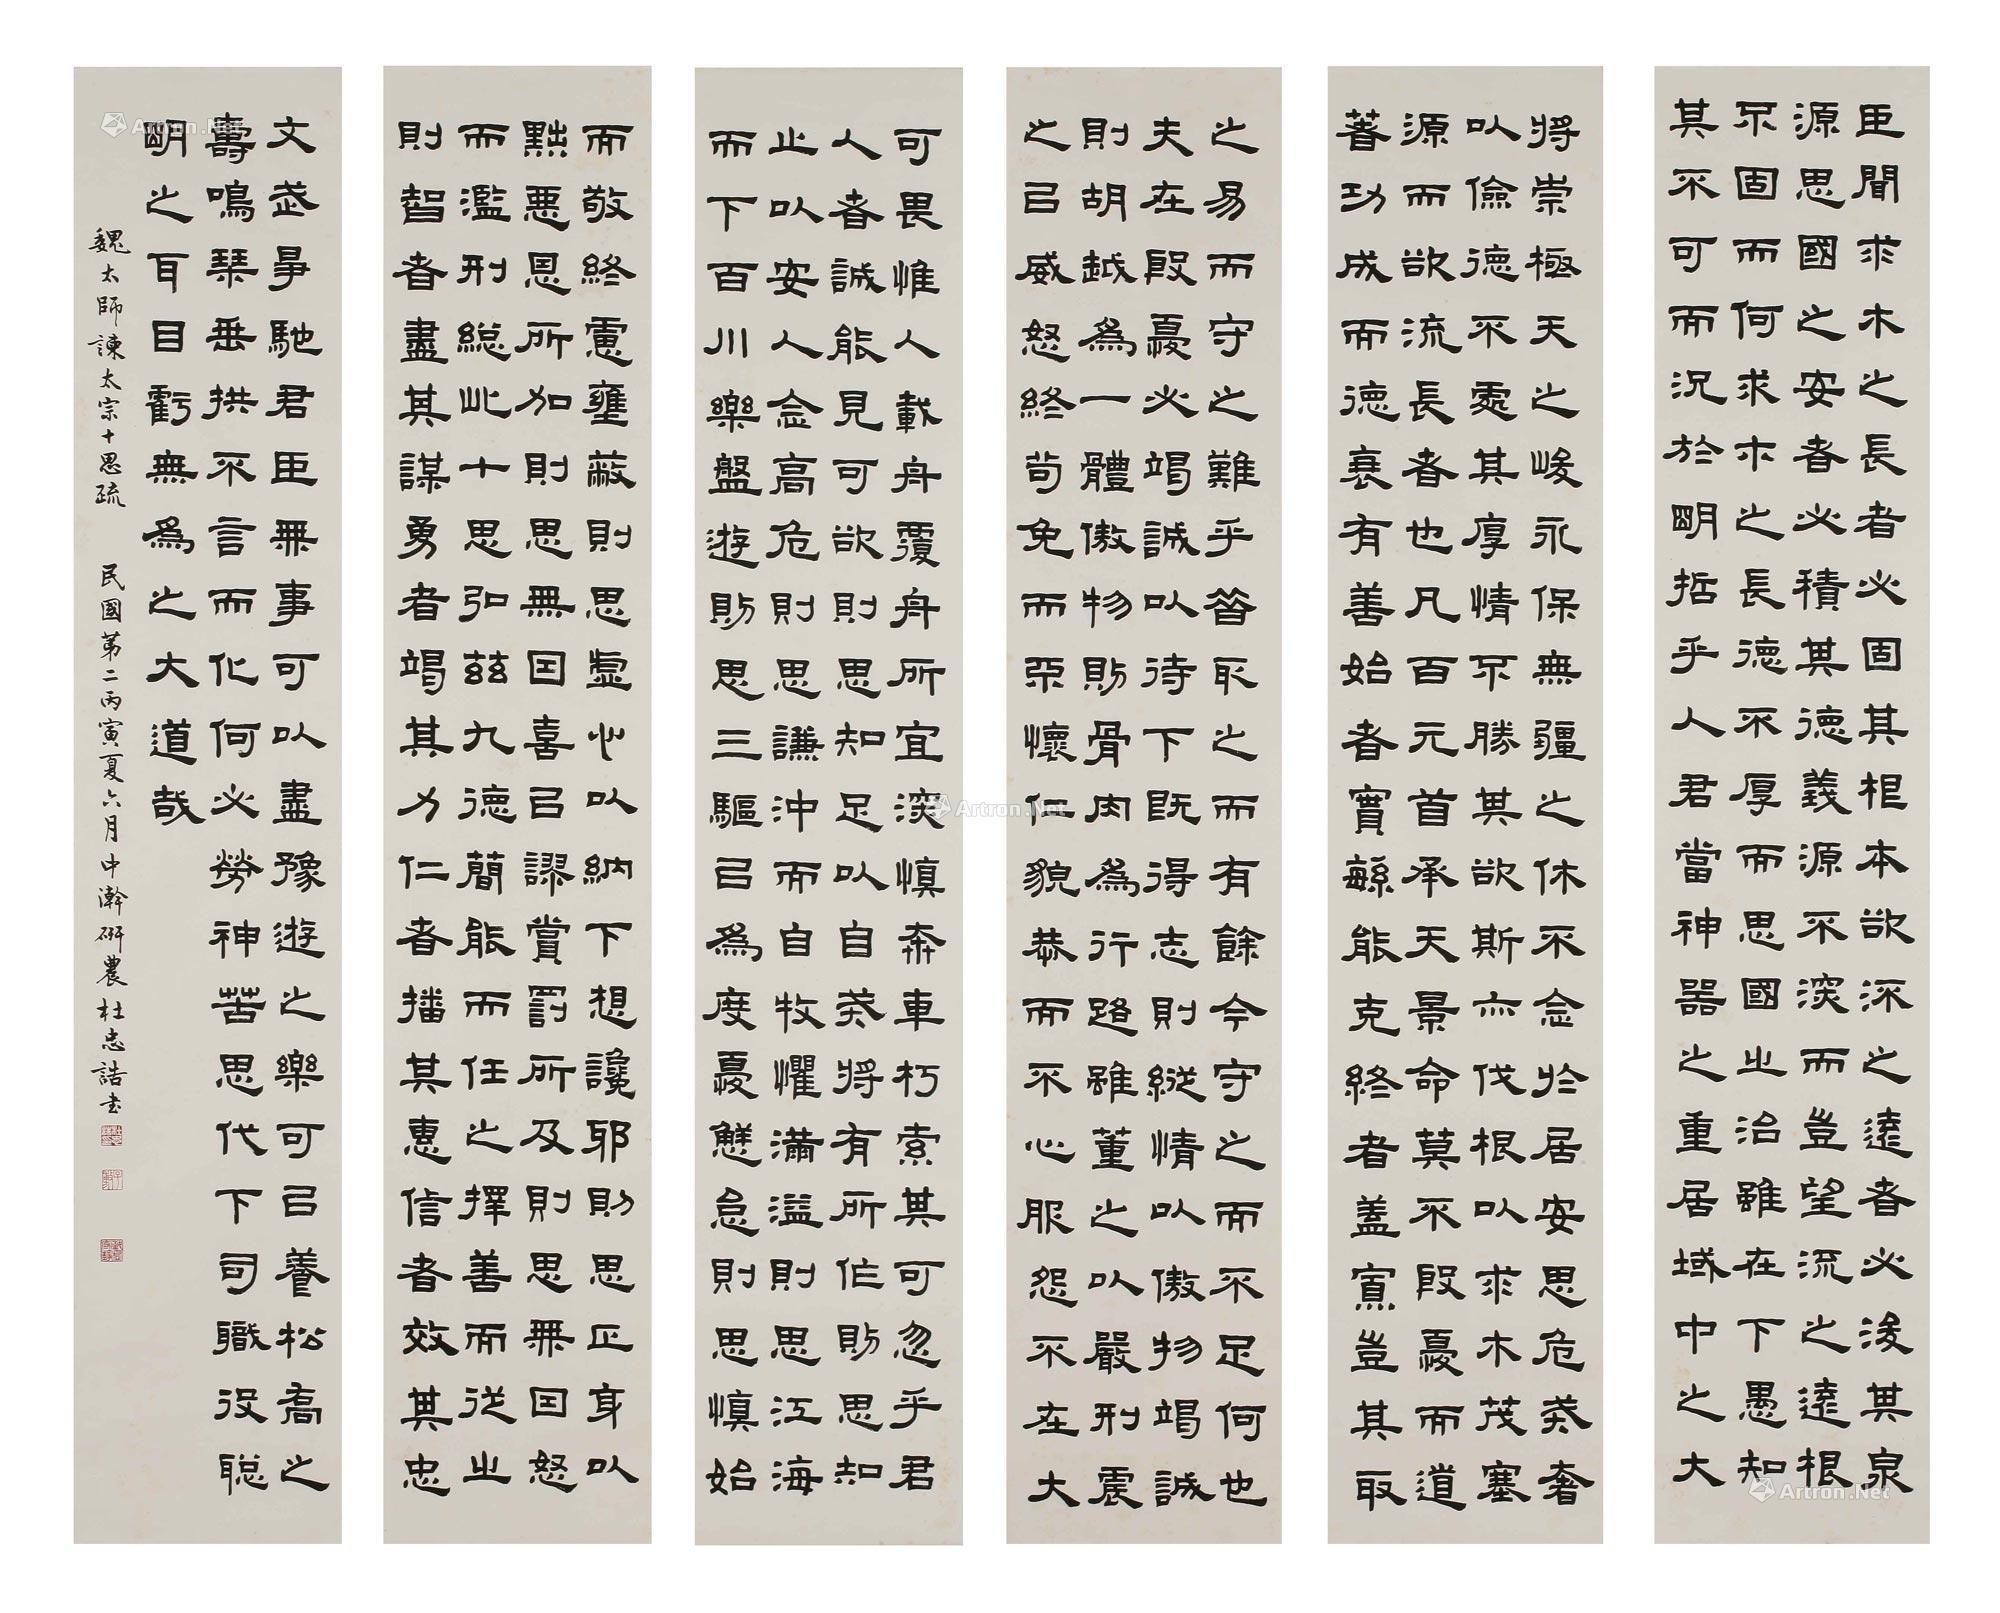 臣聞求木之長者必固其根本欲流之遠者必浚其泉
源思國之安者必積其德義源不深而豈望流之遠根
不固而何求木之長德不厚而思國之治雖在下愚知
其不可而況於明哲乎人君當神器之重居域中之大
將崇極天之峻永保無疆之休不念於居安思危戒奢
以儉德不處其厚情不勝其欲斯亦伐根以求木茂塞
源而欲流長者也凡百元首承天景命莫不殷憂而道
著功成而德衰有善始者實繁能克終者蓋寡豈其取
之易而守之難乎昔取之而有餘今守之而不足何也
夫在殷憂必竭誠以待下既得志則縱情以傲物竭誠
則胡越為一體傲物則骨肉為行路雖董之以嚴刑震
之㠯威怒終苟免而不懷仁貌恭而不心服怨不在大
可畏惟人載舟覆舟所宜深慎奔車朽索其可忽乎君
人者誠能見可欲則思知足以自戒將有所作則思知
止以安人念高危則思謙沖而自牧懼滿溢則思江海
而下百川樂盤遊則思三驅㠯為度憂懈怠則思慎始
而敬終慮壅蔽則思虛心以納下想讒邪則思正身以
黜惡恩所加則思無因喜㠯謬賞罰所及則思無因怒
而濫刑總此十思弘茲九德簡能而任之擇善而從之
則智者盡其謀勇者竭其力仁者播其惠信者效其忠
文武爭馳君臣無事可以盡豫遊之樂可㠯養松喬之
壽鳴琴垂拱不言而化何必勞神苦思代下司職役聰
明之耳目虧無為之大道哉
魏太師諫太宗十思疏 民國第二丙寅夏六月中澣研農杜忠誥書
Artron.Net
Artron.Net
Artron.Net